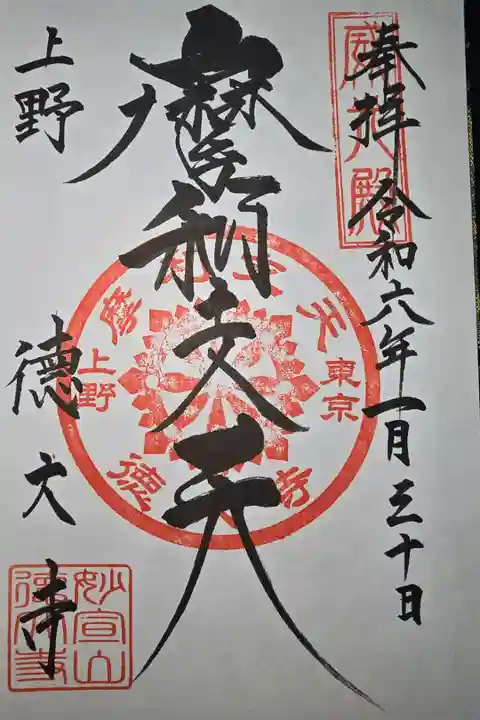 奉拝 令和六年一月三十日
威光殿
摩利支天
摩利支天
東京
上野
徳大寺
上野 徳大寺
妙宣山
徳大寺